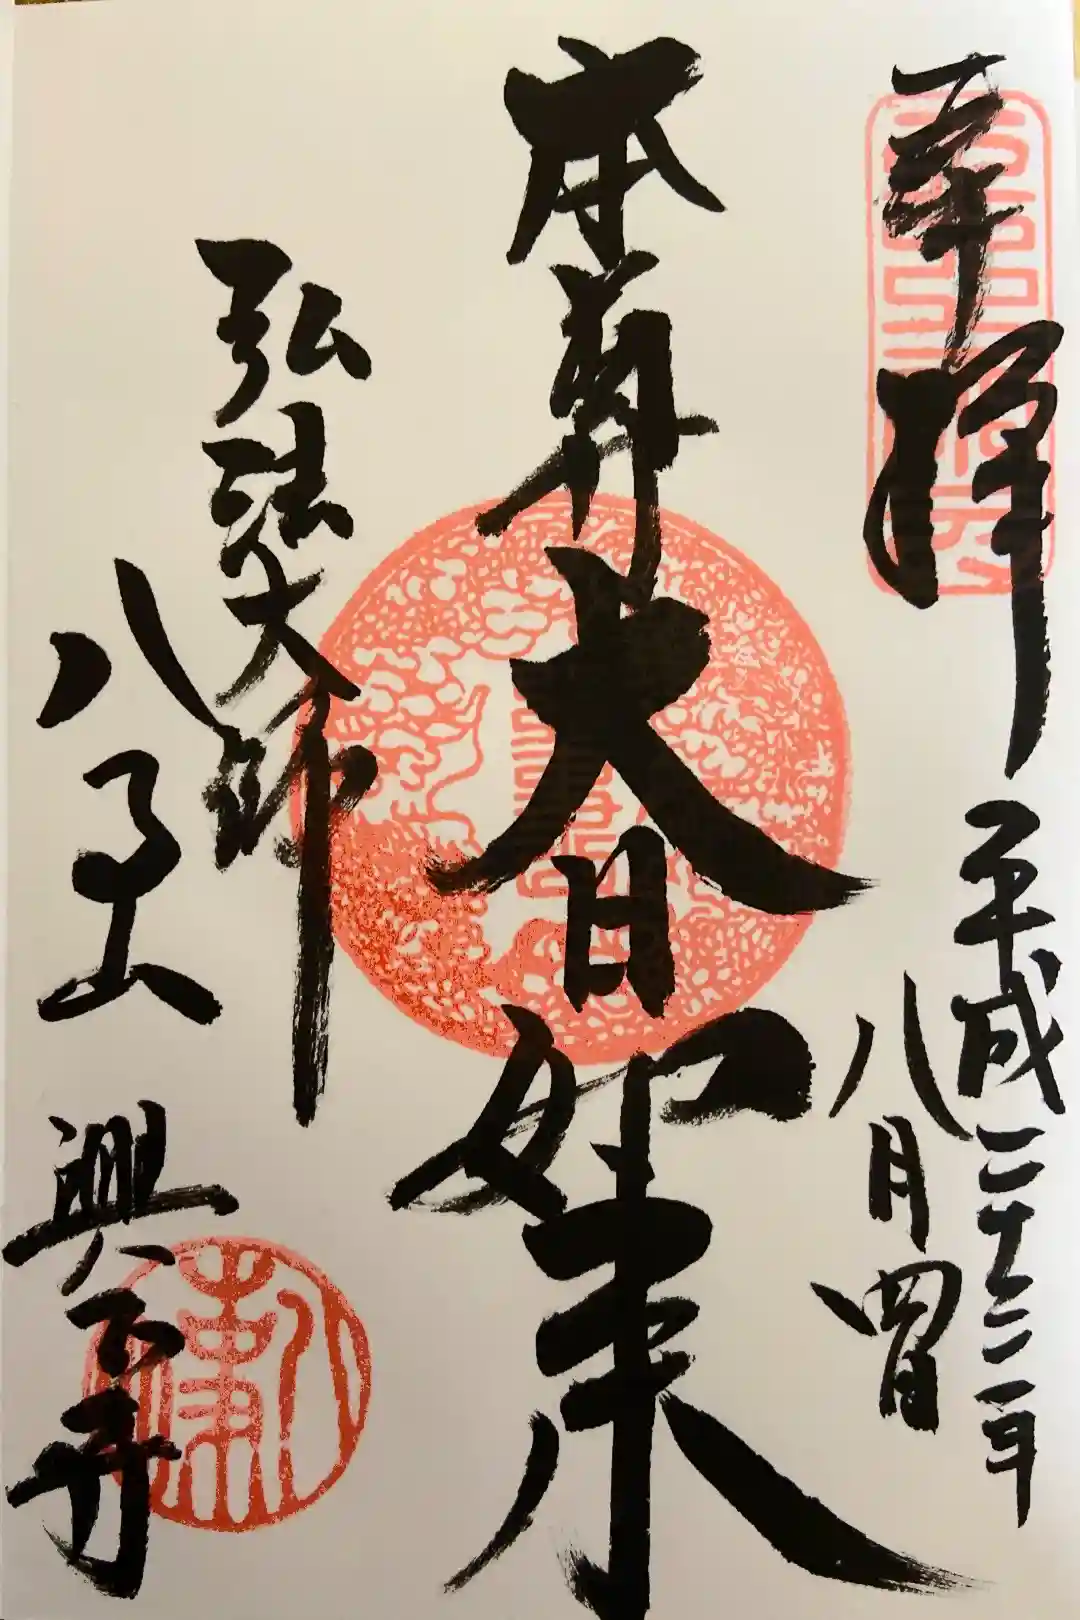 奉拝
平成二十二年
八月四日
本尊大日如来
弘法大師
八事山
興正寺